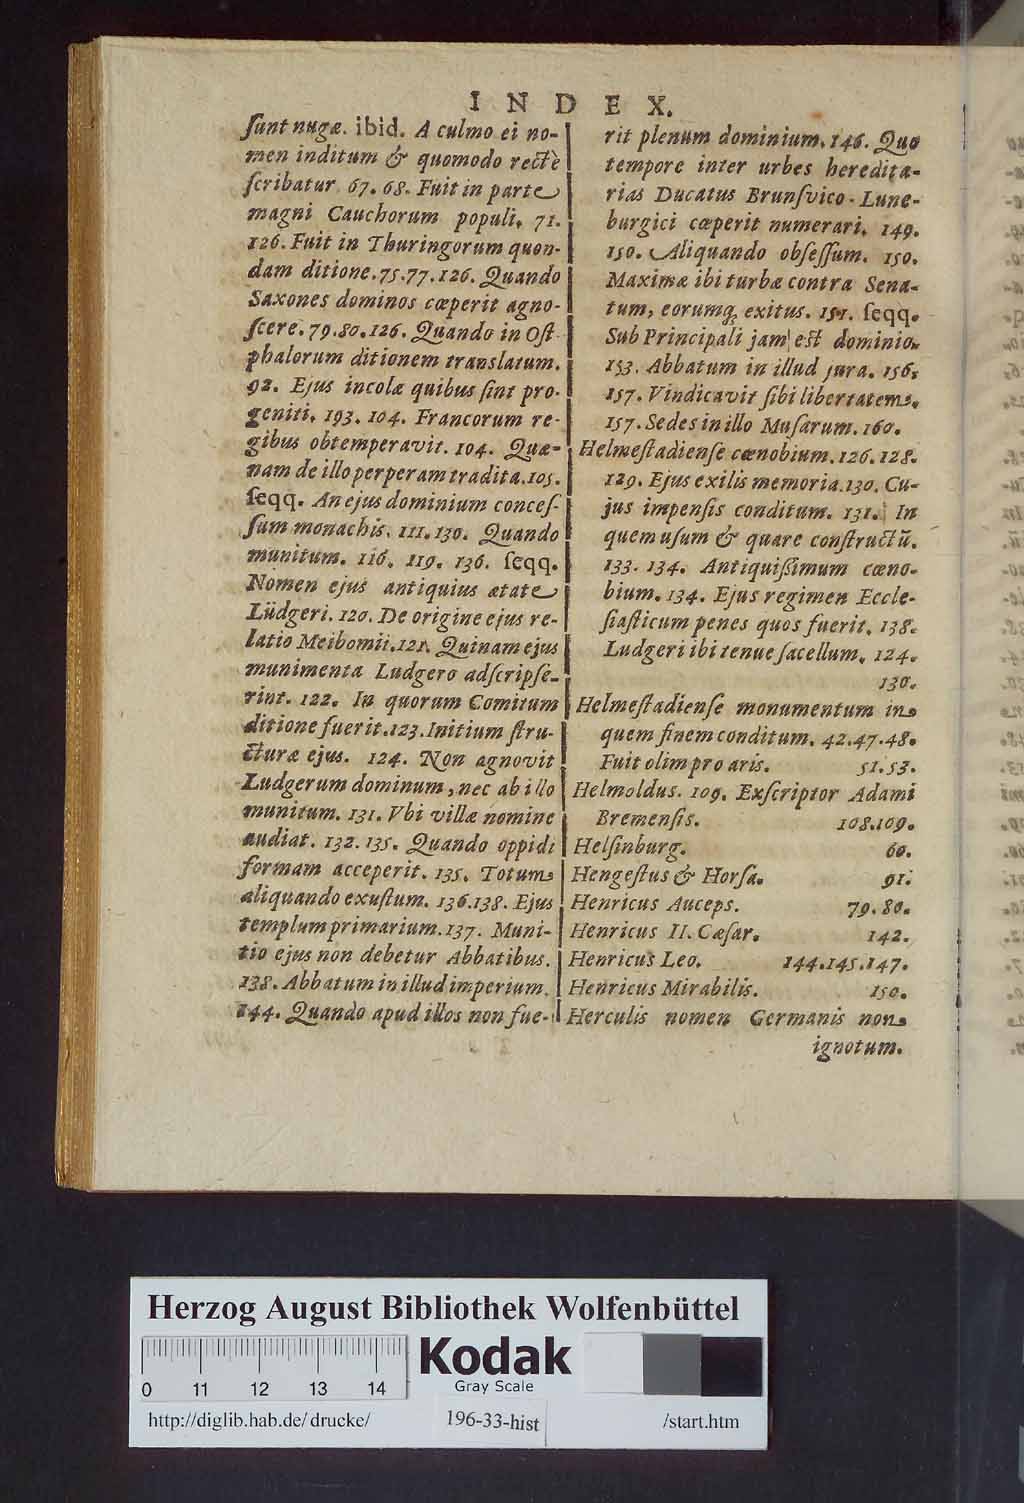 INDEX.
ſunt nugæ. ibid. A culmo ei no-
men inditum & quomodo rectè
ſcribatur 67. 68. Fuit in parte
magni Cauchorum populi. 71.
126. Fuit in Thuringorum quon-
dam ditione. 75. 77. 126. Quando
Saxones dominos cœperit agno-
ſcere. 79. 80. 126. Quando in Oſt
phalorum ditionem translatum.
92. Ejus incolæ quibus ſint pro-
geniti. 193. 104. Francorum re-
gibus obtemperavit. 104. Quæ-
nam de illo perperam tradita. 105.
ſeqq. An ejus dominium conceſ-
ſum monachis. 111. 130. Quando
munitum. 116. 119. 136. ſeqq.
Nomen ejus antiquius ætate
Lüdgeri. 120. De origine ejus re-
latio Meibomii. 121. Quinam ejus
munimenta Ludgero adſcripſe-
rint. 122. In quorum Comitum
ditione fuerit. 123. Initium ſtru-
cturæ ejus. 124. Non agnovit
Ludgerum dominum, nec ab illo
munitum. 131. Vbi villæ nomine
audiat. 132. 135. Quando oppidi
formam acceperit. 135. Totum
aliquando exuſtum. 136. 138. Ejus
templum primarium. 137. Muni-
tio ejus non debetur Abbatibus.
138. Abbatum in illud imperium.
144. Quando apud illos non fue-
rit plenum dominium. 146. Quo
tempore inter urbes heredita-
rias Ducatus Brunſvico-Lune-
burgici cœperit numerari. 149.
150. Aliquando obſeſſum. 150.
Maximæ ibi turbæ contra Sena-
tum, eorumq́; exitus. 151. ſeqq.
Sub Principali jam est dominio.
153. Abbatum in illud jura. 156.
157. Vindicavit ſibi libertatem.
157. Sedes in illo Muſarum. 160.
Helmeſtadienſe cœnobium. 126. 128.
129. Ejus exilis memoria. 130. Cu-
jus impenſis conditum. 131. In
quem uſum & quare conſtructũ.
133. 134. Antiquiſſimum cœno-
bium. 134. Ejus regimen Eccle-
ſiaſticum penes quos fuerit. 138.
Ludgeri ibi tenue ſacellum. 124.
130.
Helmeſtadienſe monumentum in
quem finem conditum. 42. 47. 48.
Fuit olim pro aris. 51. 53.
Helmoldus. 109. Exſcriptor Adami
Bremenſis. 108. 109.
Helſinburg. 60.
Hengeſtus & Horſa. 91.
Henricus Auceps. 79. 80.
Henricus II. Cæſar. 142.
Henricus Leo. 144. 145. 147.
Henricus Mirabilis. 150.
Herculis nomen Germanis non
ignotum.
Herzog August Bibliothek Wolfenbüttel
Kodak
Gray Scale
0 11 12 13 14
http://diglib.hab.de/drucke/ 196-33-hist /start.htm